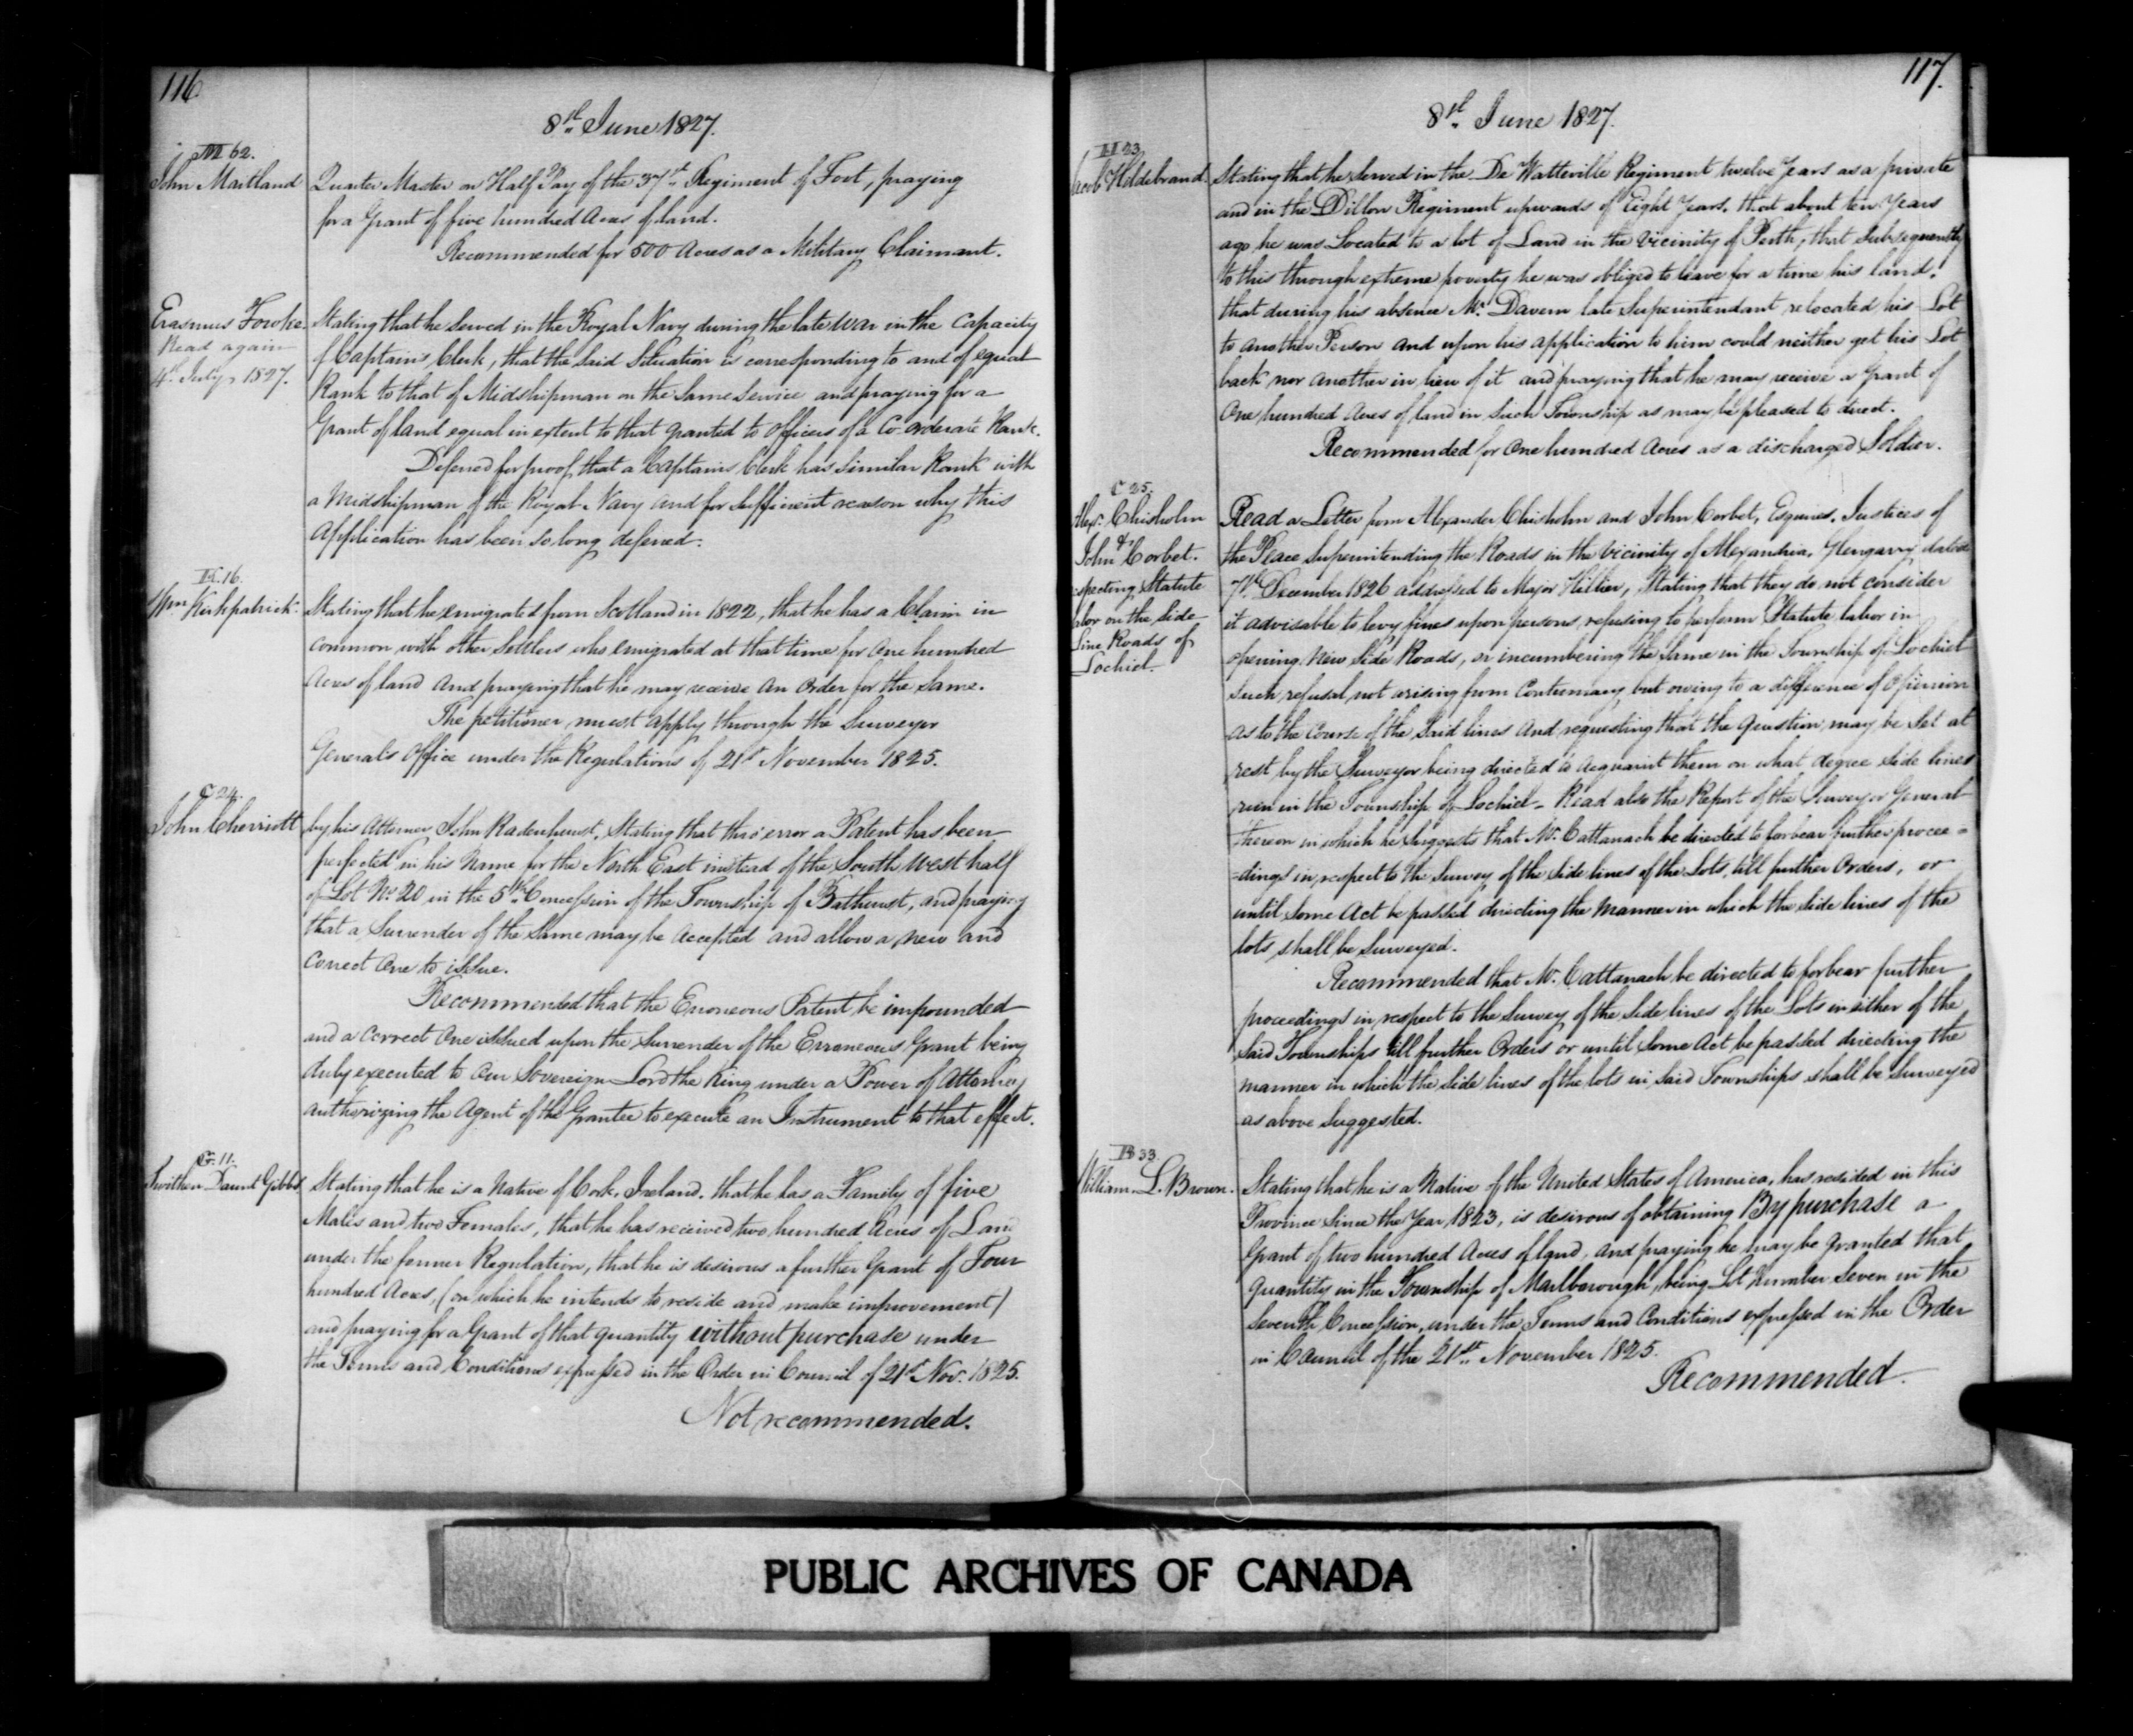 116
8th June 1827.
M 62.
John Maitland
Quarter Master on Half Pay of the 37th Regiment of Foot, praying
for a Grant of five hundred Acres of land.
Recommended for 500 Acres as a Military Claimant.
Erasmus Fowke
Read again
4th July, 1827.
Stating that he served in the Royal Navy during the late War in the Capacity
of Captains Clerk, that the said Situation is corresponding to and of equal
Rank to that of Midshipman on the same service and praying for a
Grant of land equal in extent to that granted to Officers of a Co-orderate Rank.
Defered for proof, that a Captains Clerk has similar Rank with
a Midshipman of the Royal Navy and for sufficient reason why this
Application has been so long defered.
K. 16.
Wm Kirkpatrick.
Stating that he emigrated from Scotland in 1822, that he has a Claim in
common with other Settlers who emigrated at that time for One hundred
Acres of land and praying that he may receive an order for the same.
The petitioner must apply through the Surveyor
Generals Office under the Regulations of 21st November 1825.
C 24.
John Cherriott
by his Attorney John Radenhurst, Stating that thro' error a Patent has been
perfected in his Name for the North East instead of the South West half
of Lot No. 20 in the 5th Concession of the Township of Bathurst, and praying
that a Surrender of the same may be Accepted and allow a new and
correct One to issue.
Recommended that the Erroneous Patent be impounded
and a correct One issued upon the Surrender of the Erroneous Grant being
duly executed to Our Sovereign Lord the King under a Power of Attorney
authorizing the Agent of the Grantee to execute an Instrument to that effect.
G. 11.
Swithen Daunt Gibbs
Stating that he is a Native of Cork, Ireland, that he has a Family of five
Males and two Females, that he has received two hundred Acres of Land
under the former Regulation, that he is desirous a further Grant of Four
hundred Acres, (on which he intends to reside and make improvement)
and praying for a Grant of that quantity without purchase under
the Terms and Conditions expressed in the Order in Council of 21st Nov. 1825.
Not recommended.
117.
8th June 1827.
H 23
Jacob Hildebrand.
Stating that he served in the De Watteville Regiment twelve Years as a private
and in the Dillon Regiment upwards of Eight Years, that about ten Years
ago he was Located to a lot of Land in the Vicinity of Perth, that Subsequently
to this through extreme poverty he was obliged to leave for a time his land,
that during his absence Mr. Davern late Superintendant relocated his Lot
to another Person and upon his application to him could neither get his Lot
back nor another in lieu of it and praying that he may receive a Grant of
One hundred Acres of land in such Township as may be pleased to direct.
Recommended for One hundred Acres as a discharged Soldier.
C 25.
Alexr. Chisholm
&
John Corbet.
especting Statute
abor on the Side
Line Roads of
Lochiel
Read a Letter from Alexander Chisholm and John Corbet, Esquires, Justices of
the Place Superintending the Roads in the Vicinity of Alexandria, Glengarry dated
7th December 1826 addressed to Major Hillier, Stating that they do not consider
it advisable to levy fines upon persons, refusing to perform Statute labor in
opening New Side Roads, or incumbering the same in the Township of Lochiel
such refusal not arising from Contumacy but owing to a difference of Opinion
as to the Course of the said lines and requesting that the question may be Set at
rest by the Surveyor being directed to Acquaint them on what degree side lines
run in the Township of Lochiel - Read also the Report of the Surveyor General
thereon in which he suggests that Mr. Cattanach be directed to forbear further procee=
=dings in respect to the Survey of the side lines of the Lots, till further Orders, or
until some Act be passed directing the Manner in which the side lines of the
lots shall be Surveyed.
Recommended that Mr. Cattanach be directed to forbear further
proceedings in respect to the Survey of the Side lines of the Lots in either of the
said Townships till further Orders or until some Act be passed directing the
manner in which the side lines of the lots in said Townships shall be Surveyed
as above Suggested.
B 33.
William L. Brown.
Stating that he is a Native of the United States of America, has resided in this
Province Since the Year 1823, is desirous of obtaining By purchase a
Grant of two hundred Acres of land, and praying he may be granted that
quantity in the Township of Marlborough, being Lot Number Seven in the
Seventh Concession, under the Terms and Conditions expressed in the Order
in Council of the 21st November 1825.
Recommended.
PUBLIC ARCHIVES OF CANADA